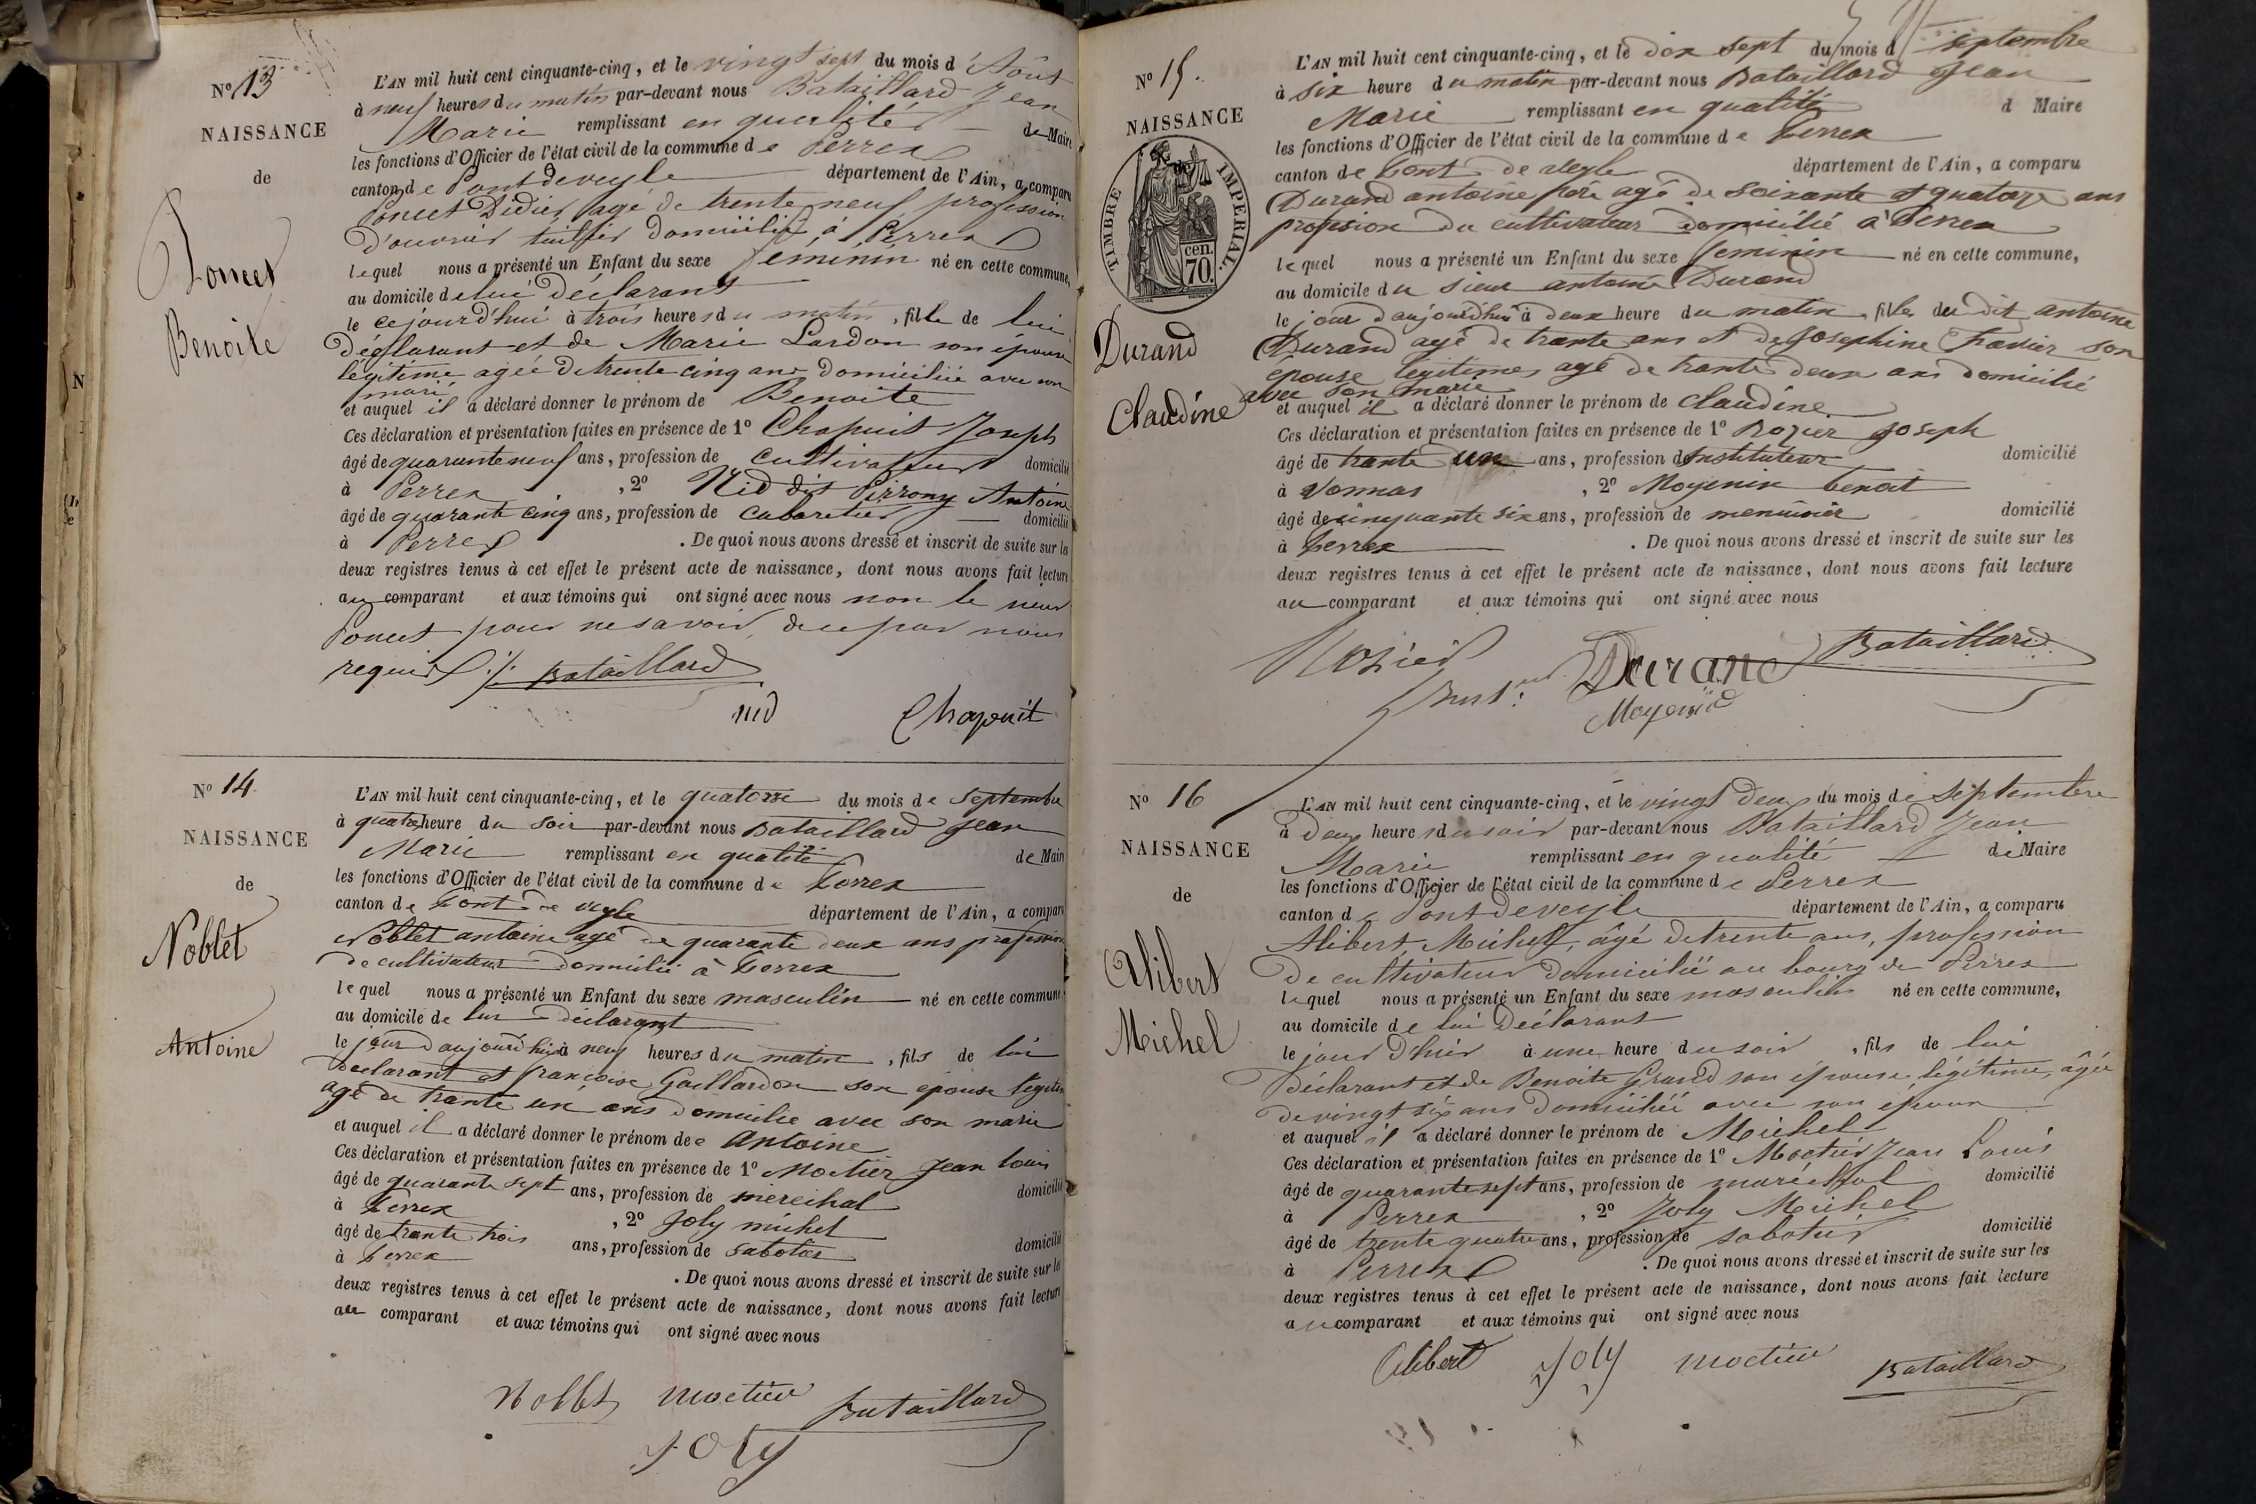 N.º 13
NAISSANCE
de
Poncet
Benoite
L'AN mil huit cent cinquante-cinq, et le vingt sept du mois d'Août
à neuf heures du matin par-devant nous Bataillard Jean
Marie remplissant en qualité de Maire
les fonctions d'Officier de l'état civil de la commune de Perrex
canton de Pontdeveyle département de l'Ain, a comparu
Poncet Didier agé de trente neuf profession
d'ouvrier tuilier domicilié à Perrex
lequel nous a présenté un Enfant du sexe féminin né en cette commune,
au domicile de lui déclarant
le cejourd'hui à trois heures du matin, fille de lui
déclarant et de Marie Lardon son épouse
légitime agée de trente cinq ans domiciliée avec son
mari
et auquel il a déclaré donner le prénom de Benoite
Ces déclaration et présentation faites en présence de 1º Chapuit Joseph
âgé de quarante neuf ans, profession de cultivateur domicilié
à Perrex, 2º Nid dit Pirrony Antoine
âgé de quarante cinq ans, profession de cabaretier domicilié
à Perrex. De quoi nous avons dressé et inscrit de suite sur les
deux registres tenus à cet effet le présent acte de naissance, dont nous avons fait lecture
au comparant et aux témoins qui ont signé avec nous non le sieur
Poncet pour ne savoir, de ce par nous
requis ./. Bataillard
nid Chapuit
Nº 14
NAISSANCE
de
Noblet
Antoine
L'AN mil huit cent cinquante-cinq, et le quatorze du mois de septembre
à quatre heure du soir par-devant nous Bataillard Jean
Marie remplissant en qualité de Maire
les fonctions d'Officier de l'état civil de la commune de Perrex
canton de Pont de veyle département de l'Ain, a comparu
Noblet antoine agé de quarante deux ans profession
de cultivateur domicilié à Perrex
lequel nous a présenté un Enfant du sexe masculin né en cette commune,
au domicile de lui déclarant
le jour d'aujourd'hui à neuf heures du matin, fils de lui
déclarant et françoise Gaillardon son épouse légitime
agé de trante un ans domicilie avec son marie
et auquel il a déclaré donner le prénom de antoine
Ces déclaration et présentation faites en présence de 1º Moctier Jean louis
âgé de quarante sept ans, profession de merechal domicilié
à Perrex, 2º Joly michel
âgé de trante trois ans, profession de sabotier domicilié
à Perrex. De quoi nous avons dressé et inscrit de suite sur les
deux registres tenus à cet effet le présent acte de naissance, dont nous avons fait lecture
au comparant et aux témoins qui ont signé avec nous
Noblet Moctier Bataillard
Joly
Nº 15.
NAISSANCE
de
TIMBRE IMPERIAL.
70 cen.
Durand
Claudine
L'AN mil huit cent cinquante-cinq, et le dix sept du mois d septembre
à six heure du matin par-devant nous Bataillard Jean
Marie remplissant en qualité d Maire
les fonctions d'Officier de l'état civil de la commune de Perrex
canton de Pont de veyle département de l'Ain, a comparu
Durand antoine père agé de soixante et quatorze ans
profision du cultivateur domicilié à Perrex
lequel nous a présenté un Enfant du sexe feminin né en cette commune,
au domicile du sieur antoine Durand
le jour d'aujourd'hui à deux heure du matin, fille du dit antoine
Durand agé de trante ans et de Josephine Travier son
epouse legitimes agé de trante deux ans domicilié
avec son marie
et auquel il a déclaré donner le prénom de claudine
Ces déclaration et présentation faites en présence de 1º Rozier Joseph
âgé de trante un ans, profession de instituteur domicilié
à Vonnas, 2º Moyenin benoit
âgé de cinquante six ans, profession de menuisier domicilié
à Perrex. De quoi nous avons dressé et inscrit de suite sur les
deux registres tenus à cet effet le présent acte de naissance, dont nous avons fait lecture
au comparant et aux témoins qui ont signé avec nous
Rozier Durand Bataillard
Inst.
Nº 16
NAISSANCE
de
Alibert
Michel
L'AN mil huit cent cinquante-cinq, et le vingt deux du mois de septembre
à deux heures du soir par-devant nous Bataillard Jean
Marie remplissant en qualité de Maire
les fonctions d'Officier de l'état civil de la commune de Perrex
canton de Pontdeveyle département de l'Ain, a comparu
Alibert Michel, âgé de trente ans, profession
de cultivateur domicilié au bourg de Perrex
lequel nous a présenté un Enfant du sexe masculin né en cette commune,
au domicile de lui déclarant
le jour d'hier à une heure du soir, fils de lui
déclarant et de Benoite Grand son épouse légitime, âgée
de vingt six ans domiciliée avec son époux
et auquel il a déclaré donner le prénom de Michel
Ces déclaration et présentation faites en présence de 1º Moctier Jean Louis
âgé de quarante sept ans, profession de maréchal domicilié
à Perrex, 2º Joly Michel
âgé de trente quatre ans, profession de sabotier domicilié
à Perrex. De quoi nous avons dressé et inscrit de suite sur les
deux registres tenus à cet effet le présent acte de naissance, dont nous avons fait lecture
au comparant et aux témoins qui ont signé avec nous
Alibert Joly Moctier Bataillard